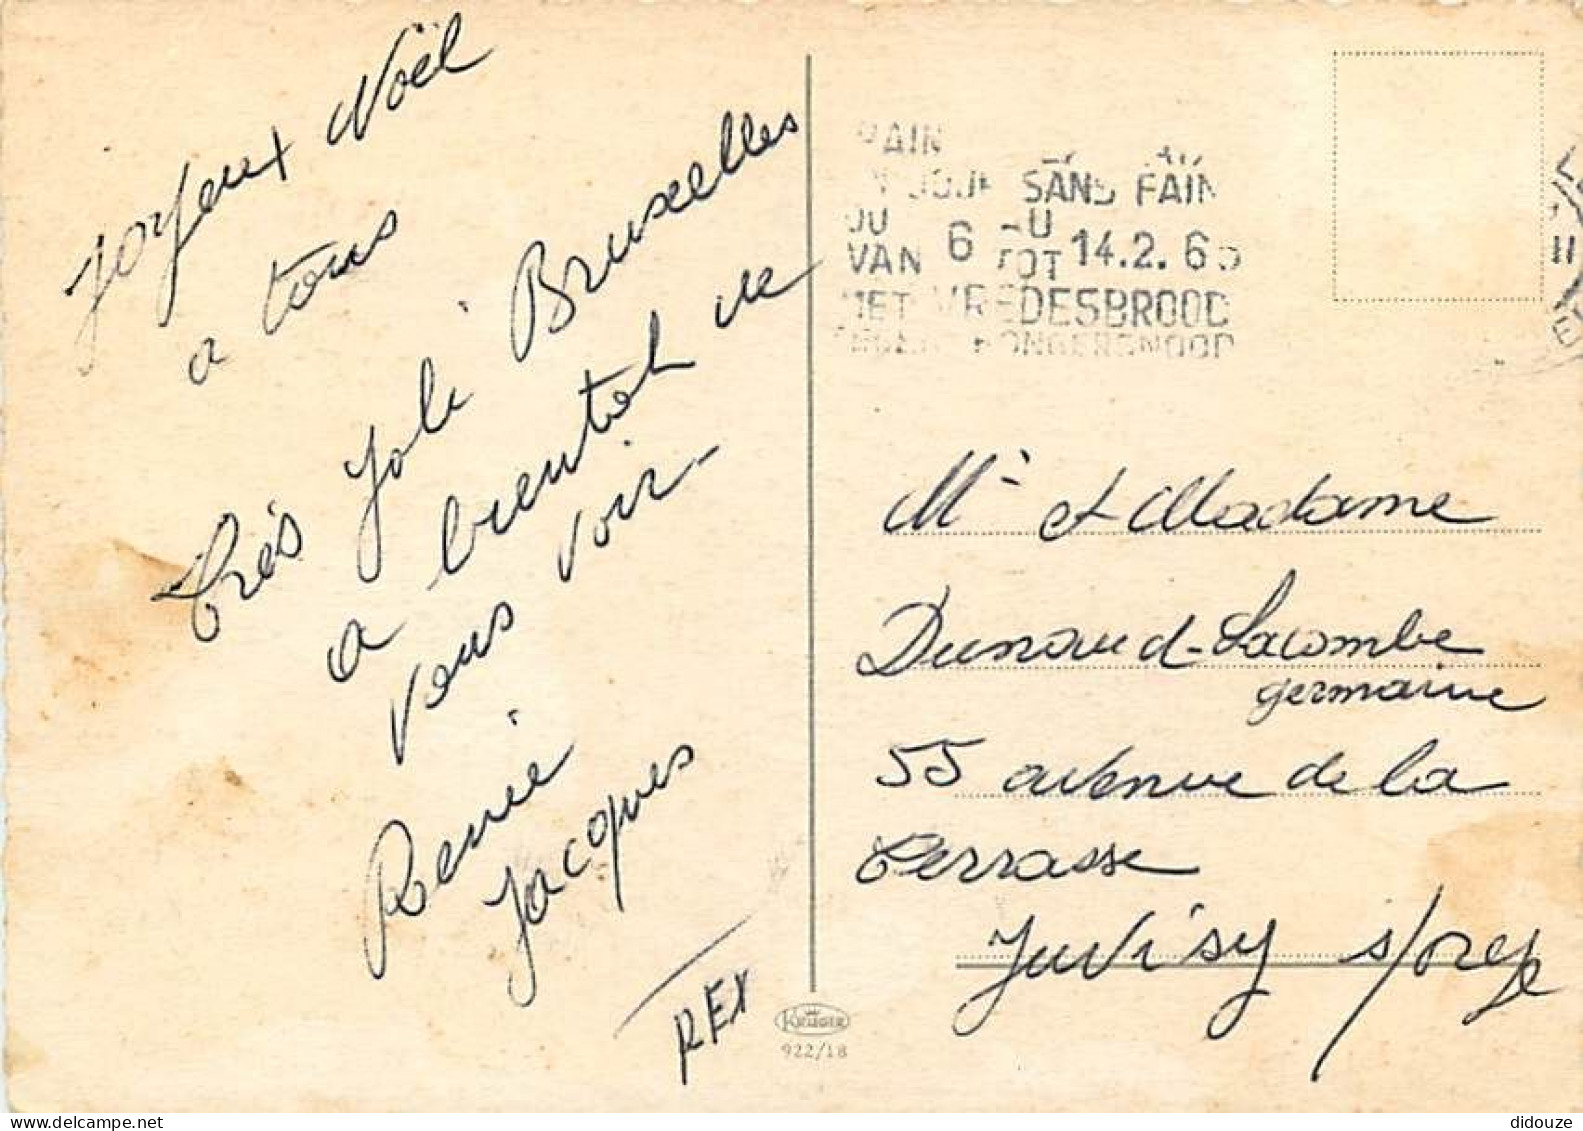 Joyeux Noël
a tous
très Joli Bruxelles
a bientot de
vous voir-
René
Jacques
REX
SANS FAIM
VAN 6 TOT 14.2.6
MET VREDESBROOD
HONGERSNOOD
Mr et Madame
Dunaud-Lacombe
germaine
55 avenue de la
Terrasse
Juvisy s/orge
KRÜGER
922/18
www.delcampe.net
didouze